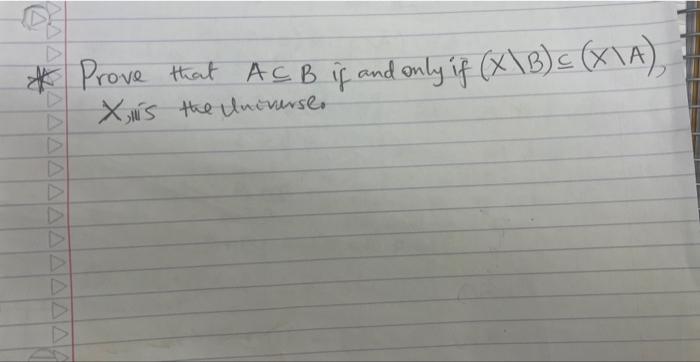 * Prove that A ⊆ B if and only if (X\B) ⊆ (X\A),
X, is the Universe.